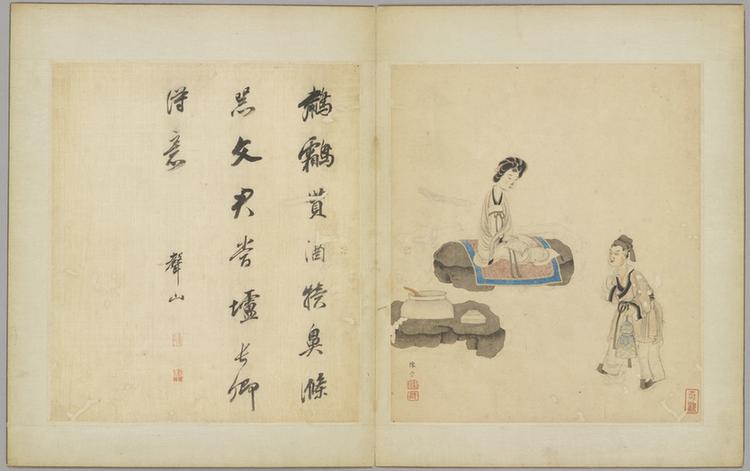 鷫鸘貰酒犢鼻滌
器文君當壚長卿
得意
聲山
陳字